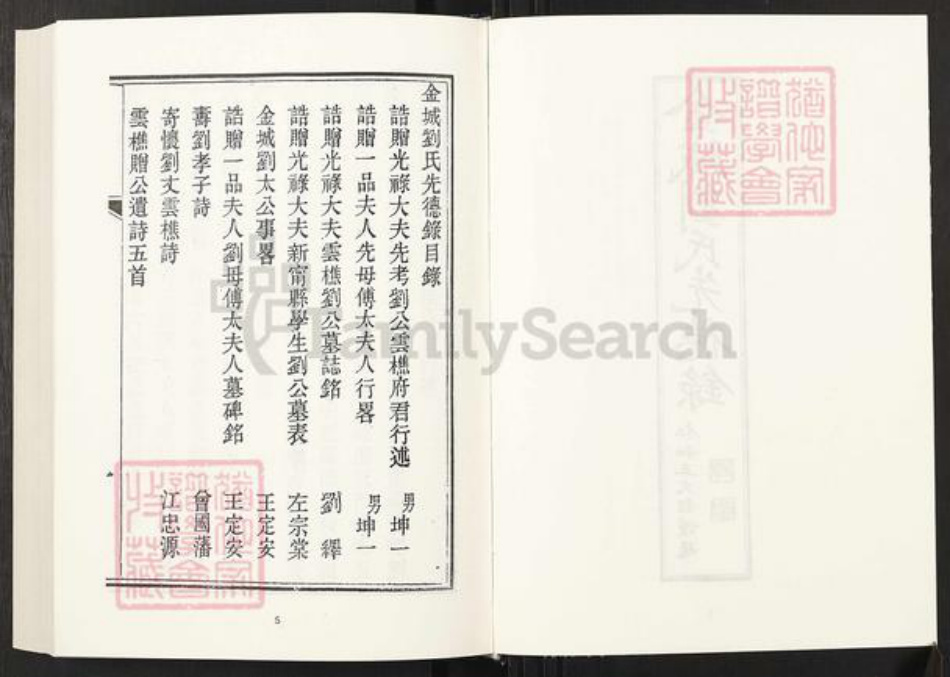 金城劉氏先德錄目錄
誥贈光祿大夫先考劉公雲樵府君行述 男坤一
誥贈一品夫人先母傅太夫人行畧 男坤一
誥贈光祿大夫雲樵劉公墓誌銘 劉繹
誥贈光祿大夫新甯縣學生劉公墓表 左宗棠
金城劉太公事畧 王定安
誥贈一品夫人劉母傅太夫人墓碑銘 王定安
壽劉孝子詩 曾國藩
寄懷劉丈雲樵詩 江忠源
雲樵贈公遺詩五首
5
FamilySearch
譜學會
收藏
譜學會
收藏